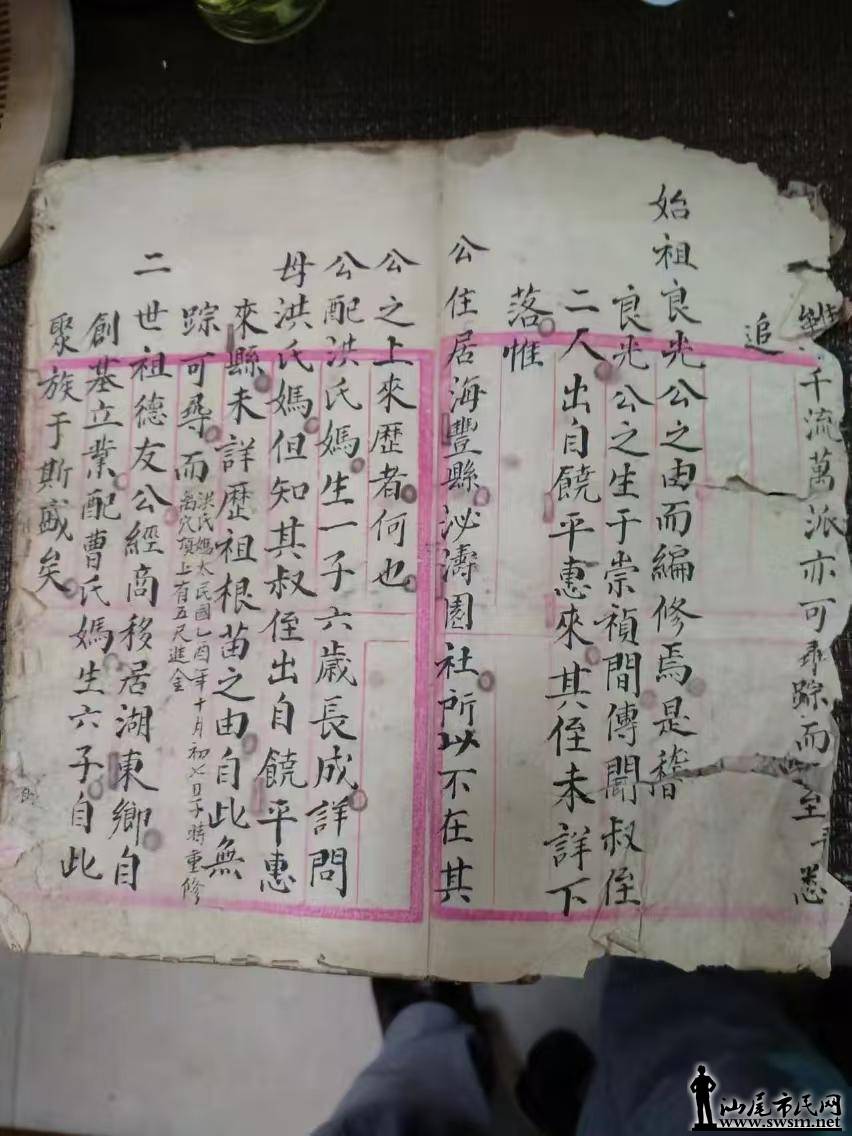 雖千流萬派亦可尋踪而至乎悉
追
始祖良光公之由而編修焉是譜
良光公之生于崇禎間傳聞叔侄
二人出自饒平惠來其侄未詳下
落惟
公住居海豐縣泌濤園社所以不在其
公之上來歷者何也
公配洪氏媽生一子六歲長成詳問
母洪氏媽但知其叔侄出自饒平惠
來縣未詳歷祖根苗之由自此無
踪可尋而
洪氏媽太民國乙酉年十月初七日子時重修
舊穴項上有五尺進金
二世祖德友公經商移居湖東鄉自
創基立業配曹氏媽生六子自此
聚族于斯盛矣
汕尾市民网
www.swsm.net